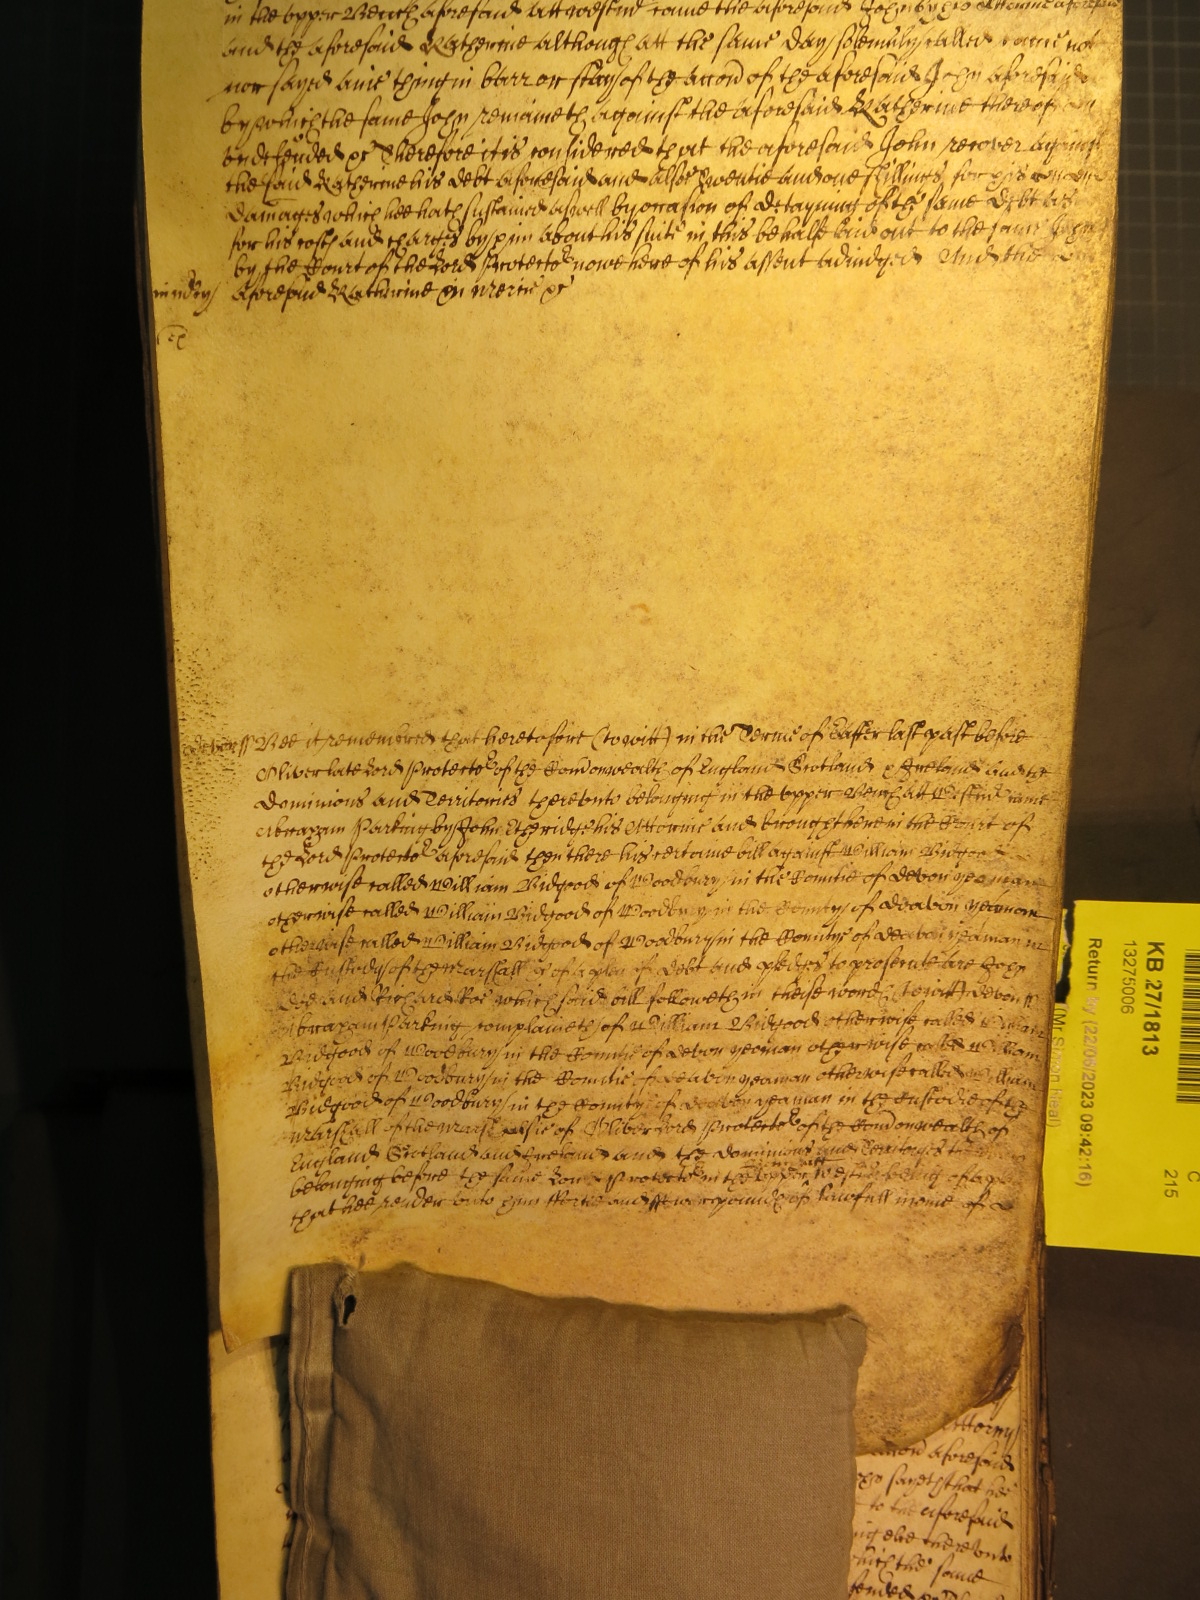 in the upper Bench aforesaid att Westmr came the aforesaid John by his Attornie aforesaid
and the aforesaid Katherine although att the same day solemnly called came not
nor sayed anie thing in barr or stay of the accon of the aforesaid John aforesaid
by which the same John remaineth against the aforesaid Katherine thereof
undefended &c Therefore it is considered that the aforesaid John recover against
the said Katherine his debt aforesaid and alsoe Twentie and one shillings for his
damages which hee hath sustained aswell by occasion of detayning of the same debt as
for his costs and charges by him about his suite in this behalfe laid out to the same John
by the Court of the Lord Protector nowe here of his assent adiudged And the
aforesaid Katherine in mercie &c
in mercy
Bee it remembred that heretofore (to witt) in the Terme of Easter last past before
Oliver late Lord Protector of the Comonwealth of England Scotland & Ireland and the
dominions and Territories thereunto belonging in the upper Bench att Westmr came
Abraham Parking by John Etheridge his Attornie and brought here in the Court of
the Lord Protector aforesaid then there his certaine bill against William Bidgood
otherwise called William Bidgood of Woodbury in the Countie of Devon yeoman
otherwise called William Bidgood of Woodbury in the County of deavon yeoman
otherwise called William Bidgood of Woodbury in the Countye of deavon yeaman in
the Custody of the Marshall &c of a plea of debt and pledges to prosecute are John
Doe and Richard Roe which said bill followeth in theise words (to witt) Devon ss
Abraham Parking complaineth of William Bidgood otherwise called William
Bidgood of Woodbury in the Countie of Devon yeoman otherwise called William
Bidgood of Woodbury in the Countie of deavon yeaman otherwise called William
Bidgood of Woodbury in the County of deavon yeaman in the Custodie of the
Marshall of the Marshalsie of Oliver Lord Protector of the Comonwealth of
England Scotland and Ireland and the dominions and Territoryes
belonging before the same Lord Protector in the upper Bench att Westmr being of a plea
that hee render unto him fortie and pounds of lawfull monie of
Attorny
accon aforesaid
sayeth that hee
to the aforesaid
ing else thereunto
which the same
KB 27/1813
13275006
Return by (22/06/2023 09:42:16)
C
215